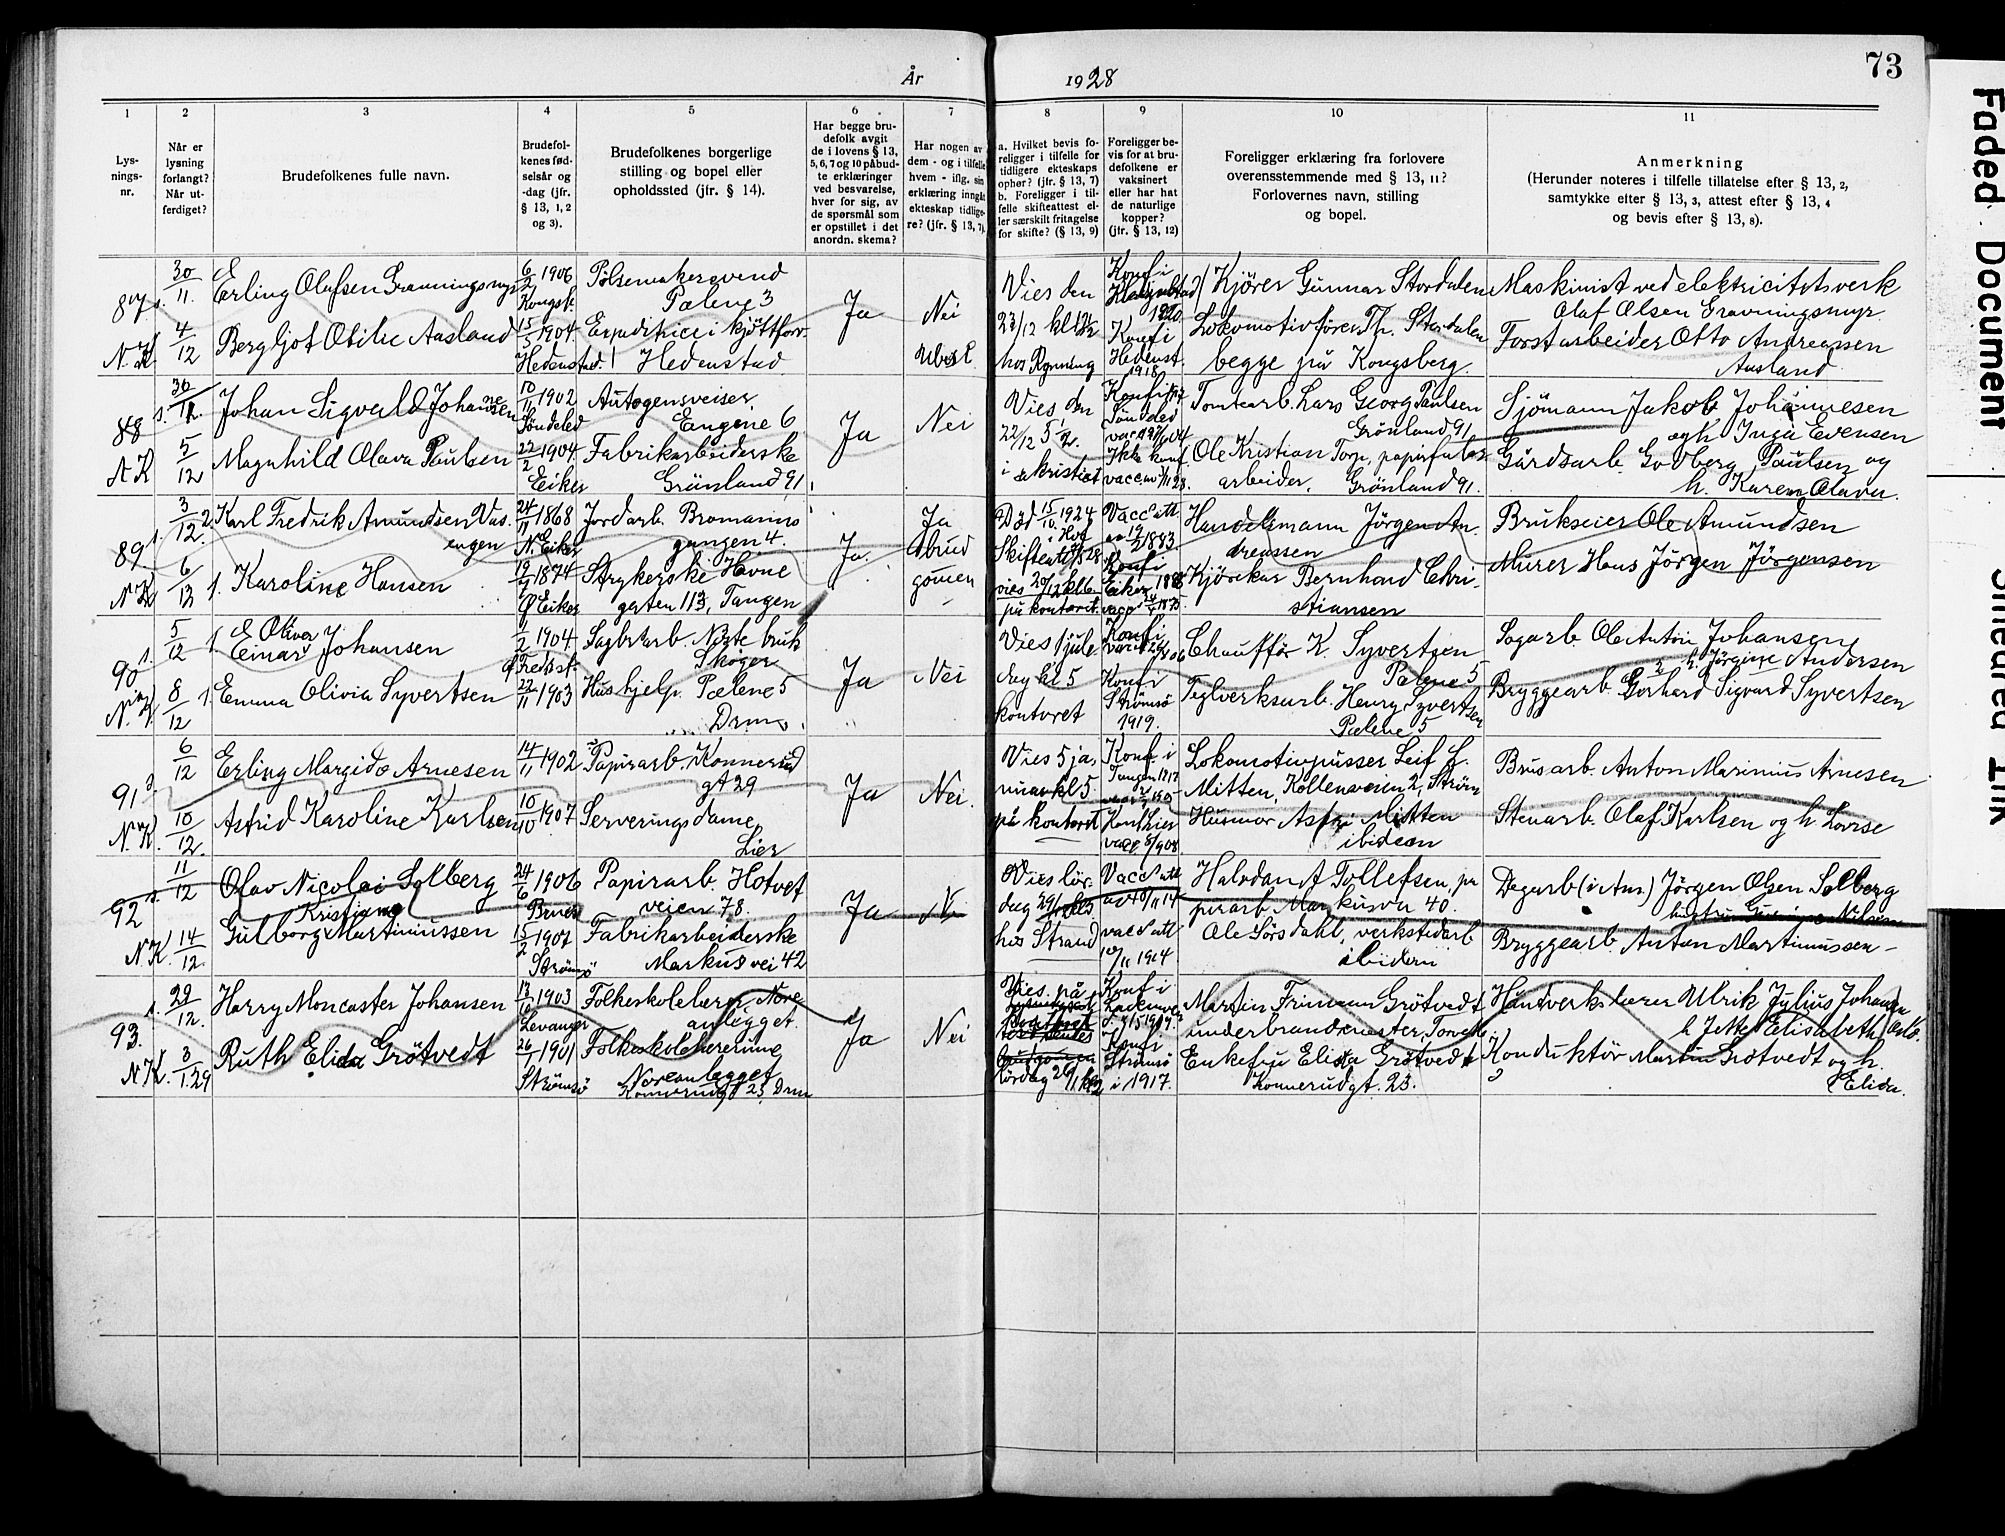 År 1928
73
1
2
3
4
5
6
7
8
9
10
11
Lys-
nings-
nr.
Når er
lysning
forlangt?
Når ut-
ferdiget?
Brudefolkenes fulle navn.
Brudefol-
kenes fød-
selsår og
-dag (jfr.
§ 13, 1, 2
og 3).
Brudefolkenes borgerlige
stilling og bopel eller
opholdssted (jfr. § 14).
Har begge bru-
defolk avgit
de i lovens § 13,
5, 6, 7 og 10 påbud-
te erklæringer
ved besvarelse,
hver for sig, av
de spørsmål som
er opstillet i det
anordn. skema?
Har nogen av
dem - og i tilfelle
hvem - iflg. sin
erklæring inngåt
ekteskap tidlige-
re? (jfr. § 13, 7).
a. Hvilket bevis fo-
religger i tilfelle for
tidligere ekteskaps
ophør? (jfr. § 13, 7)
b. Foreligger i til-
felle skifteattest el-
ler særskilt fritagelse
for skifte? (§ 13, 9)
Foreligger be-
vis for at bru-
defolkene er
vaksinert
eller har hat
de naturlige
kopper?
(jfr. § 13, 12)
Foreligger erklæring fra forlovere
overensstemmende med § 13, 11?
Forlovernes navn, stilling
og bopel.
Anmerkning
(Herunder noteres i tilfelle tillatelse efter § 13, 2,
samtykke efter § 13, 3, attest efter § 13, 4
og bevis efter § 13, 8).
87
30/11
4/12
Erling Olafsen Gravningsmyr
Bergljot Otilie Aasland
6/2 1906
Kongsb.
15/5 1904
Hedenstad
Pølsemakersvend
Pælene 3
Expeditrice i kjøttforr.
Hedenstad
Ja
Nei
Vies den
23/12
hos Rynning
Konf i
1920
Konf i
Hedenst.
1918
Kjører Gunnar Stordalen
Lokomotivfører Th. Stordalen
begge på Kongsberg.
Maskinist ved elektricitetsverk
Olaf Olsen Gravningsmyr
Forstarbeider Otto Andreassen
Aasland
88
N K
5/12
Johan Sigvald Johannesen
Magnhild Olava Paulsen
10/11 1902
Søndeled
22/2 1904
Eiker
Autogensveiser
Eugenie 6
Fabrikarbeiderske
Grønland 91
Ja
Nei
Vies den
22/12 5
i sakristiet
Søndeled
Ikke konf.
Tomtearb. Lars Georg Paulsen
Grønland 91
Ole Kristian Torp, papirfabr.
arbeider, Grønland 91.
Sjømann Jakob Johannesen
og h. Inga Evensen
Gårdsarb. Godberg Paulsen og
h. Karen Olava.
89
N K
3/12
6/12
Karl Fredrik Amundsen Vas-
engen
Karoline Hansen
24/11 1868
N. Eiker
1874
Ø Eiker
Jordarb. Bromanns
gangen 4.
Strykerske Havne
gaten 113, Tangen
Ja.
Ja
brud
gommen
Død 15/10 1924
i Hof
vies 20/12 kl 6
på kontoret
Vacc att
1883
Konfi
Eiker
Handelsmann Jørgen An-
dreassen
Kjørekar Bernhard Chri-
stiansen
Brukseier Ole Amundsen
Murer Hans Jørgen Jørgensen
90
5/12
8/12
Oliver
Einar Johansen
Emma Olivia Syvertsen
1904
Fredrst.
22/11 1903
Sagbrarb. Nøste bruk
Skoger
Hushjelp. Pælene 5
Drm.
Ja
Nei
Vies 1 jule
dag kl 5
kontoret
Konf i
Konf i
Strømsø
1919.
Chauffør K. Syvertsen
Pælene 5
Teglverksarb. Henry Syvertsen
Pælene 5
Sagarb. Ole Anton Johansen
h. Jørgine Andersen
Bryggearb. Gerhard Sigvard Syvertsen
91
N. K.
6/12
10/12
Erling Margido Arnesen
Astrid Karoline Karlsen
14/11 1902
10/10 1907
Papirarb. Konnerud
gt 29
Serveringsdame
Lier
Ja
Nei.
Vies 5 ja
nuar kl 5
på kontoret
Konf. i
Tangen 1917
Konf Lier
Lokomotivpusser Leif H.
Mitten, Kollensveien 2, Strøm
Husmor Astri Mitten
ibidem
Brusarb. Anton Marinius Arnesen
Stenarb. Olaf Karlsen og h. Lovise
92
N. K.
11/12
14/12
Olav Nicolai Solberg
Kristiane
Gulborg Martinussen
24/6 1906
15/2 1907
Strømsø
Papirarb. Hotvet
veien 78.
Fabrikarbeiderske
Markusvei 42
Ja
Vies lør
dag 29/12
hos Strand
Vacc att
vacc att
10/11 1914
Halvdan A Tollefsen, pa
pirarb Markusvn 40.
Ole Sørsdahl, verkstedarb
ibidem
Dagarb (i Am.) Jørgen Olsen Solberg
Bryggearb. Anton Martinussen
93.
N. K.
29/12.
3/1.29
Harry Moncaster Johansen
Ruth Elida Grøtvedt
13/10 1903
Levanger
26/1 1901
Strømsø
Folkeskolelærer Nore
anlegget.
Folkeskolelærerinne
Noreanlegget
Konnerudgt 23 Drm
Ja
Nei
Vies på
lørdag 26/1
Konf i
Konf i
Strømsø
i 1917.
Martin Friman Grøtvedt
underbrandmester, Torvet
Enkefru Elida Grøtvedt
Konnerudgt. 23.
Håndverkslærer Ulrik Julius Johansen
h Jette Elisabeth
Konduktør Martin Grøtvedt og h.
Elida.
Faded Document
Smeared Ink